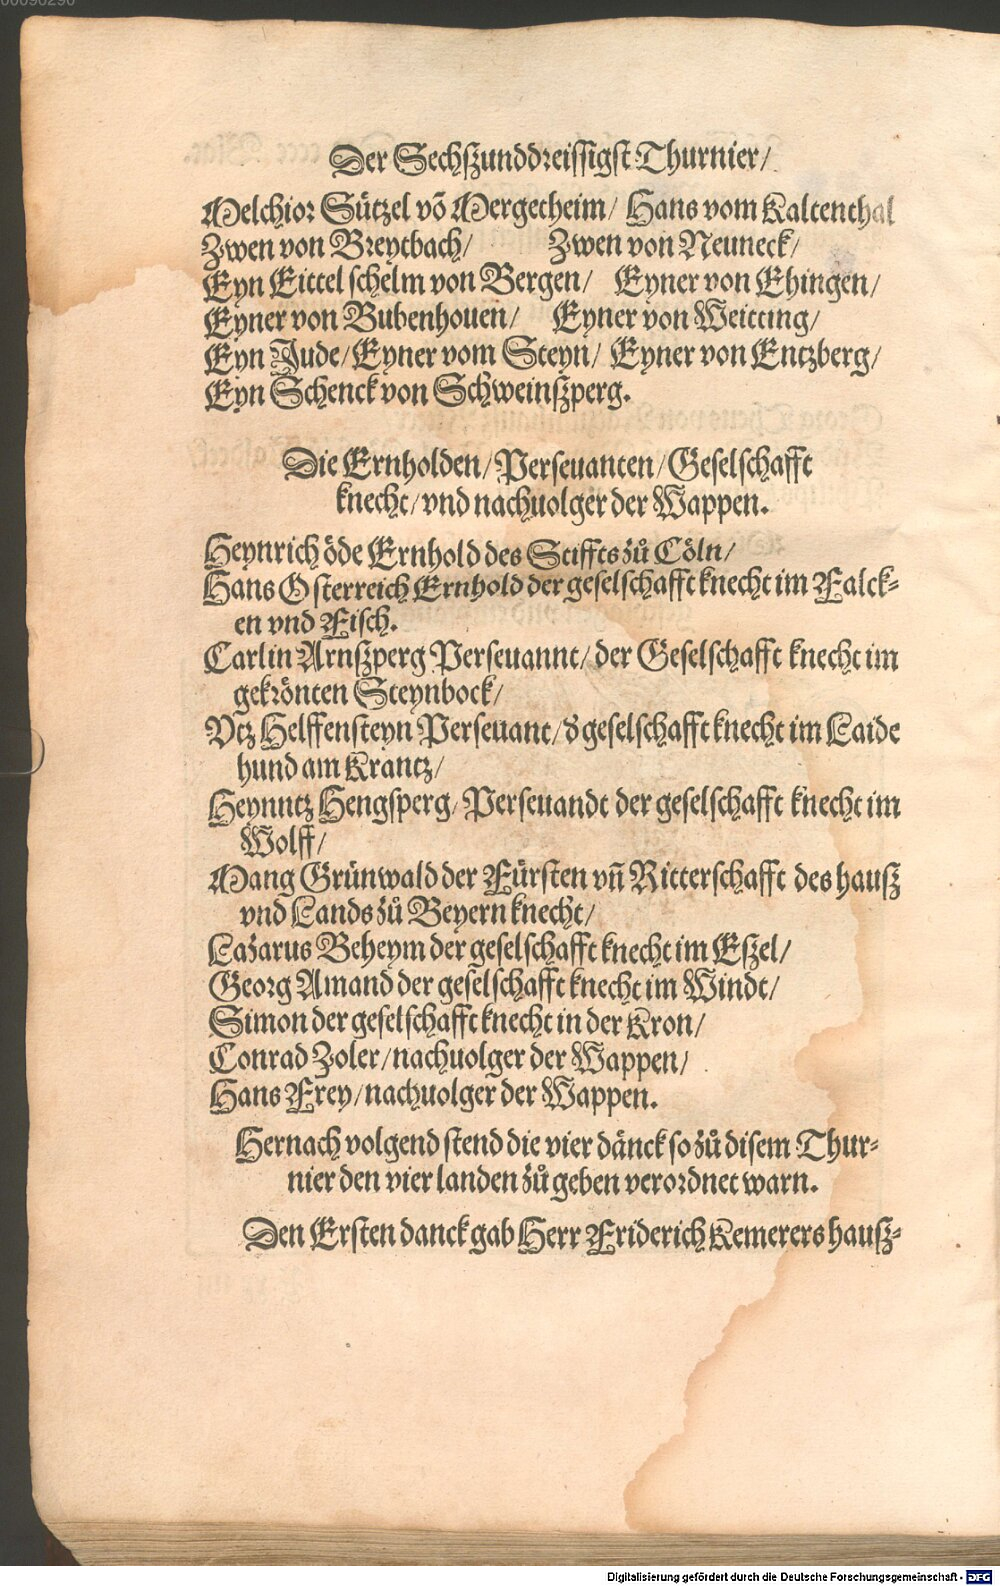 Der Sechßunddreissigst Thurnier/
Melchior Sützel võ Mergetheim/ Hans vom Kaltenthal
Zwen von Breytbach/ Zwen von Neuneck/
Eyn Eittel schelm von Bergen/ Eyner von Ehingen/
Eyner von Bubenhouen/ Eyner von Weitting/
Eyn Jude/ Eyner vom Steyn/ Eyner von Entzberg/
Eyn Schenck von Schweinßperg.
Die Ernholden/ Perseuanten/ Geselschafft
knecht/ vnd nachuolger der Wappen.
Heynrich öde Ernhold des Stiffts zů Cöln/
Hans Osterreich Ernhold der geselschafft knecht im Falck-
en vnd Fisch.
Carlin Arnßperg Perseuannt/ der Geselschafft knecht im
gekrönten Steynbock/
Vtz Helffensteyn Perseuant/ d̕ geselschafft knecht im Laide
hund am Krantz/
Heynntz Hengsperg/ Perseuandt der geselschafft knecht im
Wolff/
Mang Grünwald der Fürsten vñ Ritterschafft des hauß
vnd Lands zů Beyern knecht/
Lazarus Beheym der geselschafft knecht im Eßel/
Georg Amand der geselschafft knecht im Windt/
Simon der geselschafft knecht in der Kron/
Conrad Zoler/ nachuolger der Wappen/
Hans Frey/ nachuolger der Wappen.
Hernach volgend stend die vier dänck so zů disem Thur-
nier den vier landen zů geben verordnet warn.
Den Ersten danck gab Herr Friderich Kemerers hauß-
Digitalisierung gefördert durch die Deutsche Forschungsgemeinschaft - DFG